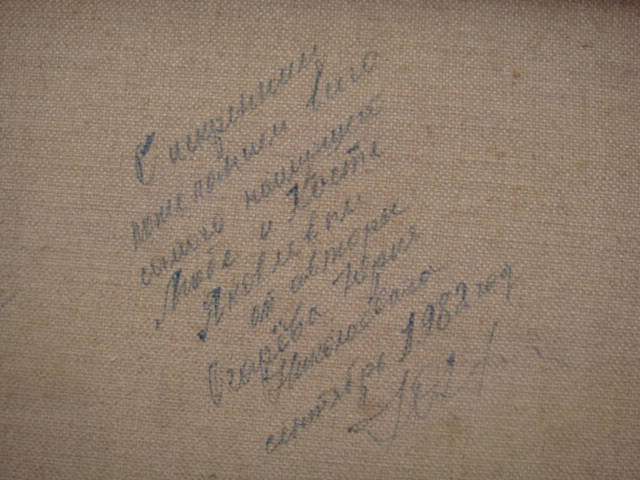 С искренним
пожеланием всего
самого наилучшего
Любе и Косте
Яковлевым
от автора
Огарёва Юрия
Николаевича
сентябрь 1982 год